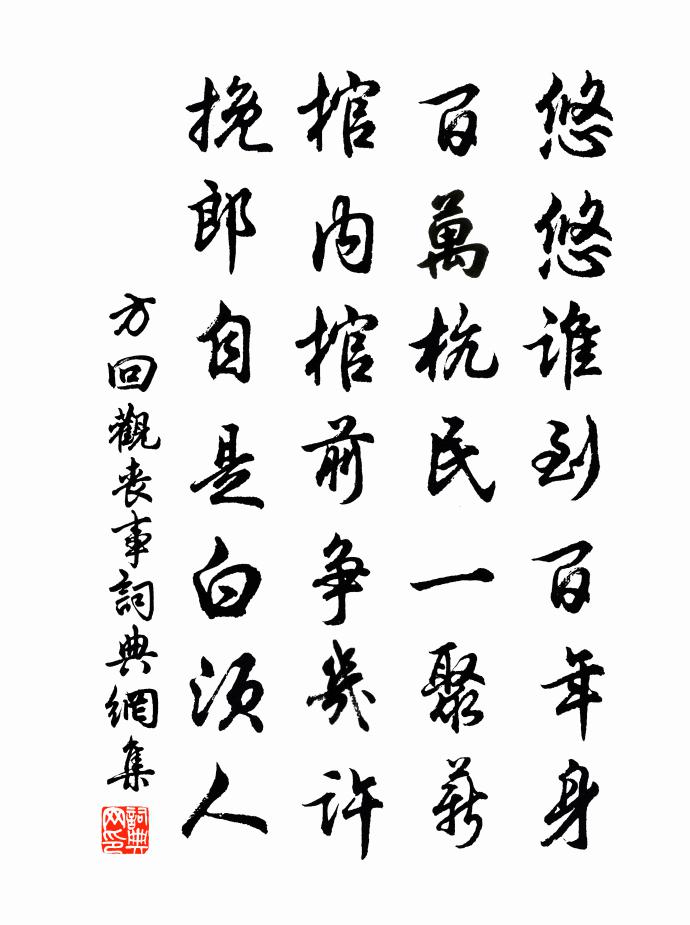 悠悠誰到百年身
百萬杭民一聚薪
棺内棺前争幾許
挽郎自是白須人
方回觀喪事詞典網集
詞典网印